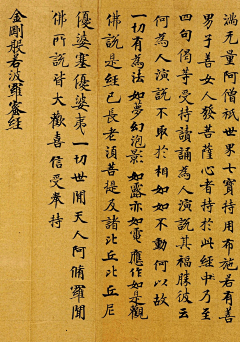 滿无量阿僧祇世界七寶持用布施若有善
男子善女人發菩薩心者持於此經中乃至
四句偈等受持讀誦為人演說其福勝彼云
何為人演說不取於相如如不動何以故
一切有為法如夢幻泡影如露亦如電應作如是觀
佛說是經已長老湏菩提及諸比丘比丘尼
優婆塞優婆夷一切世間天人阿脩羅聞
佛所說皆大歡喜信受奉持
金剛般若波羅蜜經